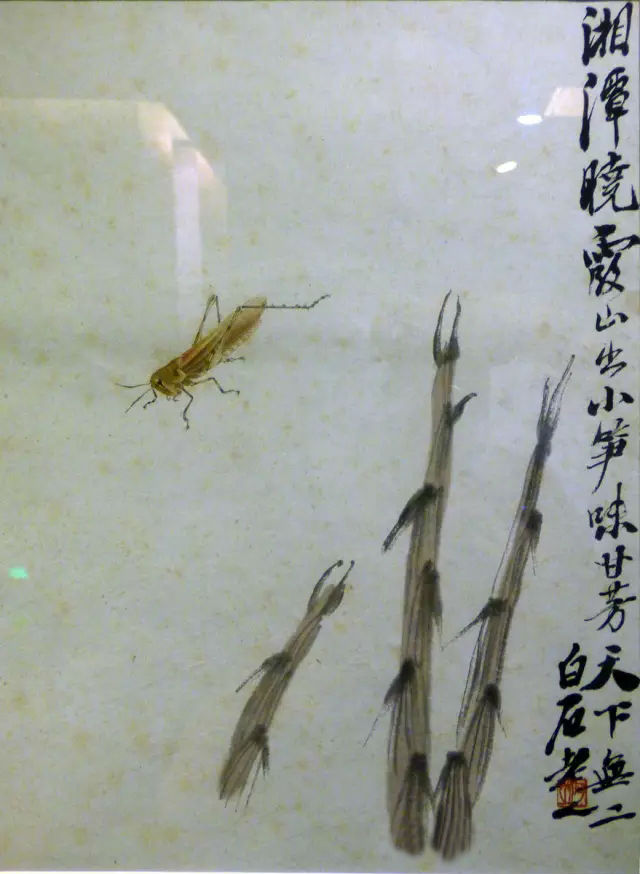 湘潭晓霞山出小笋味甘芳天下無二
白石老人